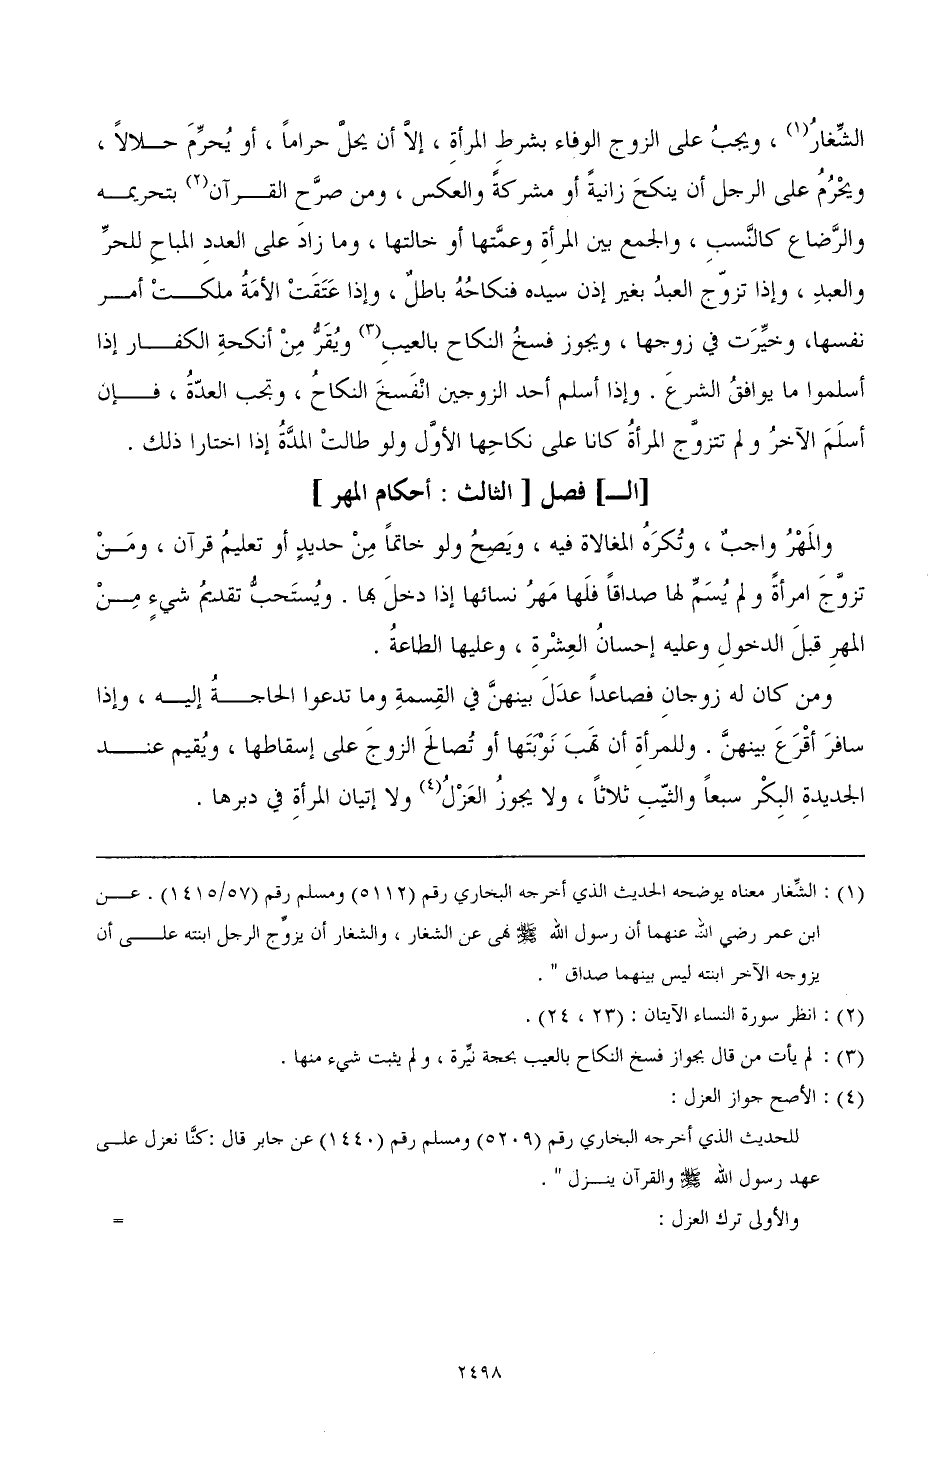 الشِّغارُ(١) ، ويجبُ على الزوج الوفاء بشرط المرأةِ ، إلاَّ أن يحلَّ حراماً ، أو يُحرِّمَ حـــلالاً ،
ويحْرُمُ على الرجل أن ينكحَ زانيةً أو مشركةً والعكس ، ومن صرَّح القــــرآن(٢) بتحريمـــه
والرَّضاع كالنَّسبِ ، والجمع بين المرأةِ وعمَّتها أو خالتها ، وما زادَ على العددِ المباحِ للحرِّ
والعبدِ ، وإذا تزوَّج العبدُ بغير إذن سيده فنكاحُهُ باطلٌ ، وإذا عَتَقَتْ الأمَةُ ملكــتْ أمــر
نفسها، وخيِّرَت في زوجها ، ويجوز فسخُ النكاح بالعيبِ(٣) ويُقَرُّ مِنْ أنكحةِ الكفــــار إذا
أسلموا ما يوافقُ الشرعَ . وإذا أسلم أحد الزوجين انْفَسخَ النكاحُ ، وتجب العدّةُ ، فـــإن
أسلَمَ الآخرُ و لم تتزوَّج المرأةُ كانا على نكاحِها الأوَّل ولو طالتْ المدَّةُ إذا اختارا ذلك .
[الــ] فصل [ الثالث : أحكام المهر ]
والمَهْرُ واجبٌ ، وتُكرَهُ المغالاة فيه ، ويَصِحُ ولو خاتماً مِنْ حديدٍ أو تعليمُ قرآن ، ومَــنْ
تزوَّجَ امرأةً و لم يُسَمِّ لها صداقاً فلَها مَهرُ نسائها إذا دخلَ بها . ويُستَحبُّ تقديمُ شيءٍ مِــنْ
المهرِ قبلَ الدخولِ وعليه إحسانُ العِشْرةِ ، وعليها الطاعةُ .
ومن كان له زوجانِ فصاعداً عدَلَ بينهنَّ في القِسمةِ وما تدعوا الحاجـــةُ إليـه ، وإذا
سافرَ أقْرَعَ بينهنَّ . وللمرأةِ أن تهبَ نَوْبَتَها أو تُصالحَ الزوجَ على إسقاطها ، ويُقيم عنــــد
الجديدةِ البكْر سبعاً والثيّبِ ثلاثاً ، ولا يجوزُ العَزْلُ(٤) ولا إتيان المرأةِ في دبرها .
(١) : الشِّغار معناه يوضحه الحديث الذي أخرجه البخاري رقم (٥١١٢) ومسلم رقم (١٤١٥/٥٧) . عـــن
ابن عمر رضي الله عنهما أن رسول الله ﷺ نهى عن الشغار ، والشغار أن يزوِّج الرجل ابنته علـــى أن
يزوجه الآخر ابنته ليس بينهما صداق " .
(٢) : انظر سورة النساء الآيتان : (٢٣ ، ٢٤) .
(٣) : لم يأت من قال بجواز فسخ النكاح بالعيب بحجة نيِّرة ، و لم يثبت شيء منها .
(٤) : الأصح جواز العزل :
للحديث الذي أخرجه البخاري رقم (٥٢٠٩) ومسلم رقم (١٤٤٠) عن جابر قال :كنَّا نعزل علــى
عهد رسول الله ﷺ والقرآن ينـــزل " .
والأولى ترك العزل : =
٢٤٩٨